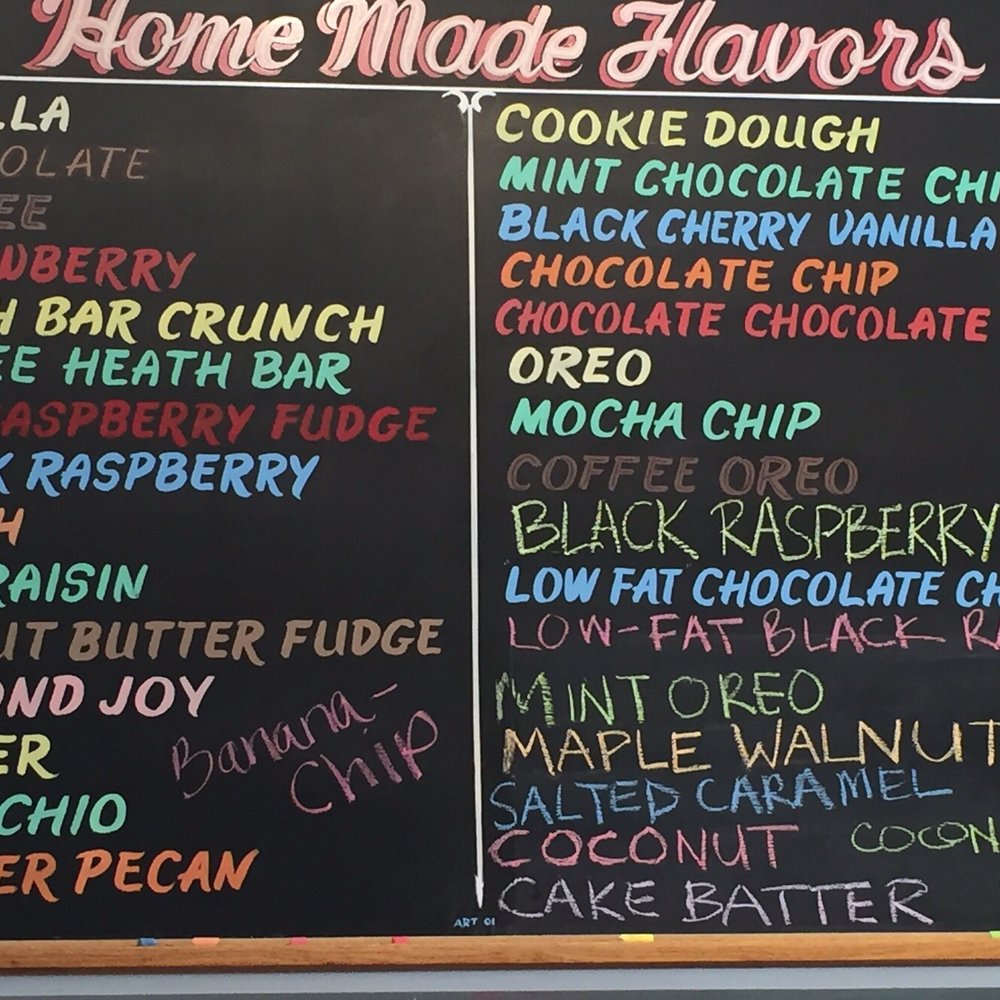 Home Made Flavors
LLA
OLATE
EE
WBERRY
H BAR CRUNCH
EE HEATH BAR
RASPBERRY FUDGE
K RASPBERRY
H
RAISIN
UT BUTTER FUDGE
OND JOY
ER
CHIO
ER PECAN
Banana-
Chip
COOKIE DOUGH
MINT CHOCOLATE CHI
BLACK CHERRY VANILLA
CHOCOLATE CHIP
CHOCOLATE CHOCOLATE
OREO
MOCHA CHIP
COFFEE OREO
BLACK RASPBERRY
LOW FAT CHOCOLATE CH
LOW-FAT BLACK RA
MINT OREO
MAPLE WALNUT
SALTED CARAMEL
COCONUT COCON
CAKE BATTER
ART 01